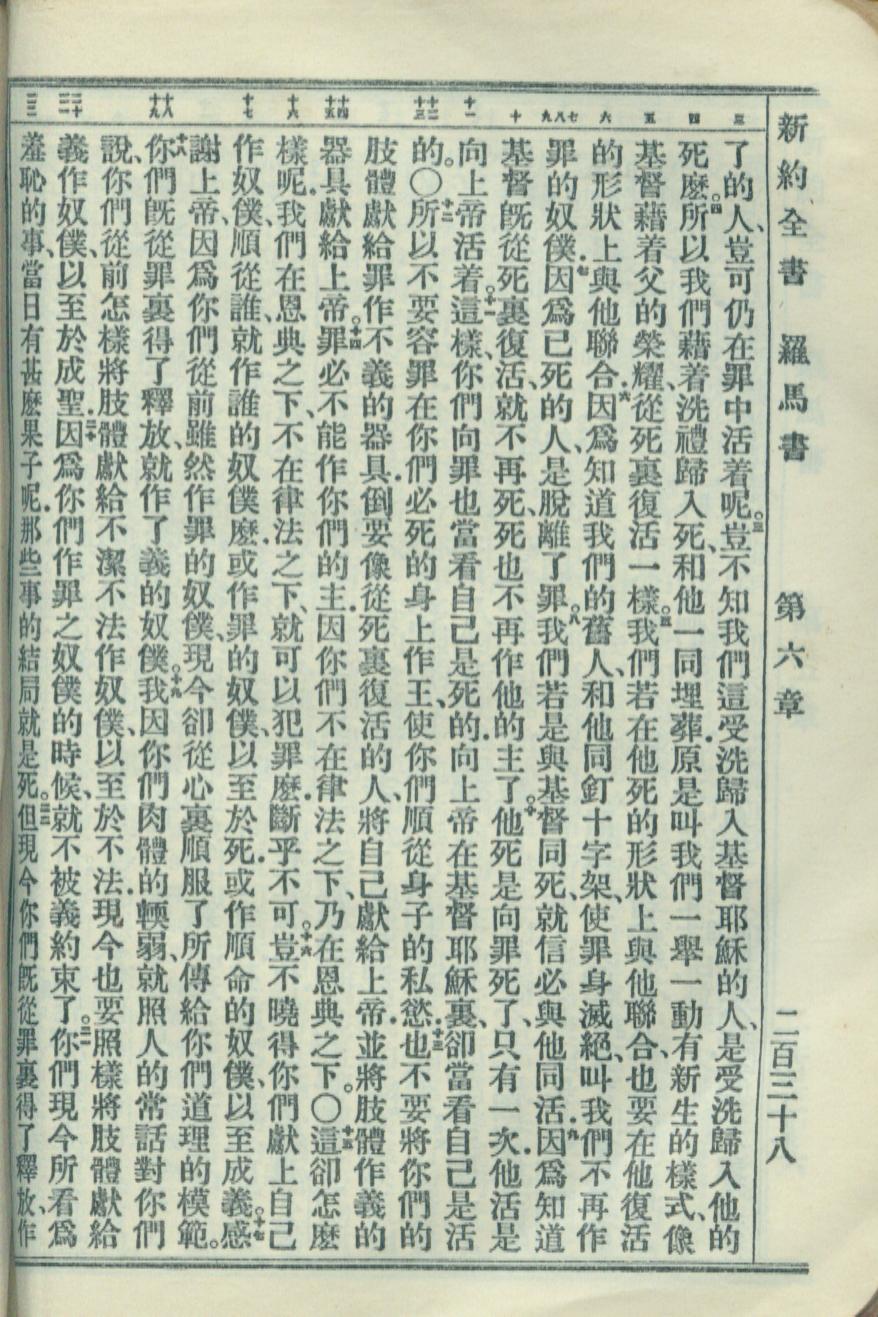 新約全書 羅馬書 第六章 二百三十八
三 四 五 六 七八九 十 十一 十二十三 十四十五 十六 十七 十八十九 二十二一 二二
了的人、豈可仍在罪中活着呢。三豈不知我們這受洗歸入基督耶穌的人、是受洗歸入他的
死麼。四所以我們藉着洗禮歸入死、和他一同埋葬.原是叫我們一舉一動有新生的樣式、像
基督藉着父的榮耀、從死裏復活一樣。五我們若在他死的形狀上與他聯合、也要在他復活
的形狀上與他聯合.六因爲知道我們的舊人、和他同釘十字架、使罪身滅絕、叫我們不再作
罪的奴僕.七因爲已死的人、是脫離了罪。八我們若是與基督同死、就信必與他同活.九因爲知道
基督旣從死裏復活、就不再死、死也不再作他的主了。十他死是向罪死了、只有一次.他活是
向上帝活着。十一這樣、你們向罪也當看自己是死的.向上帝在基督耶穌裏、卻當看自己是活
的。〇十二所以不要容罪在你們必死的身上作王、使你們順從身子的私慾.十三也不要將你們的
肢體獻給罪作不義的器具.倒要像從死裏復活的人、將自己獻給上帝.並將肢體作義的
器具獻給上帝。十四罪必不能作你們的主.因你們不在律法之下、乃在恩典之下。〇十五這卻怎麽
樣呢.我們在恩典之下、不在律法之下、就可以犯罪麼.斷乎不可。十六豈不曉得你們獻上自己
作奴僕、順從誰、就作誰的奴僕麼.或作罪的奴僕、以至於死.或作順命的奴僕、以至成義。十七感
謝上帝、因爲你們從前雖然作罪的奴僕、現今卻從心裏順服了所傳給你們道理的模範。
十八你們旣從罪裏得了釋放、就作了義的奴僕。十九我因你們肉體的輭弱、就照人的常話對你們
說、你們從前怎樣將肢體獻給不潔不法作奴僕、以至於不法.現今也要照樣將肢體獻給
義作奴僕、以至於成聖.二十因爲你們作罪之奴僕的時候、就不被義約束了。二一你們現今所看爲
羞恥的事、當日有甚麽果子呢.那些事的結局就是死。二二但現今你們旣從罪裏得了釋放、作